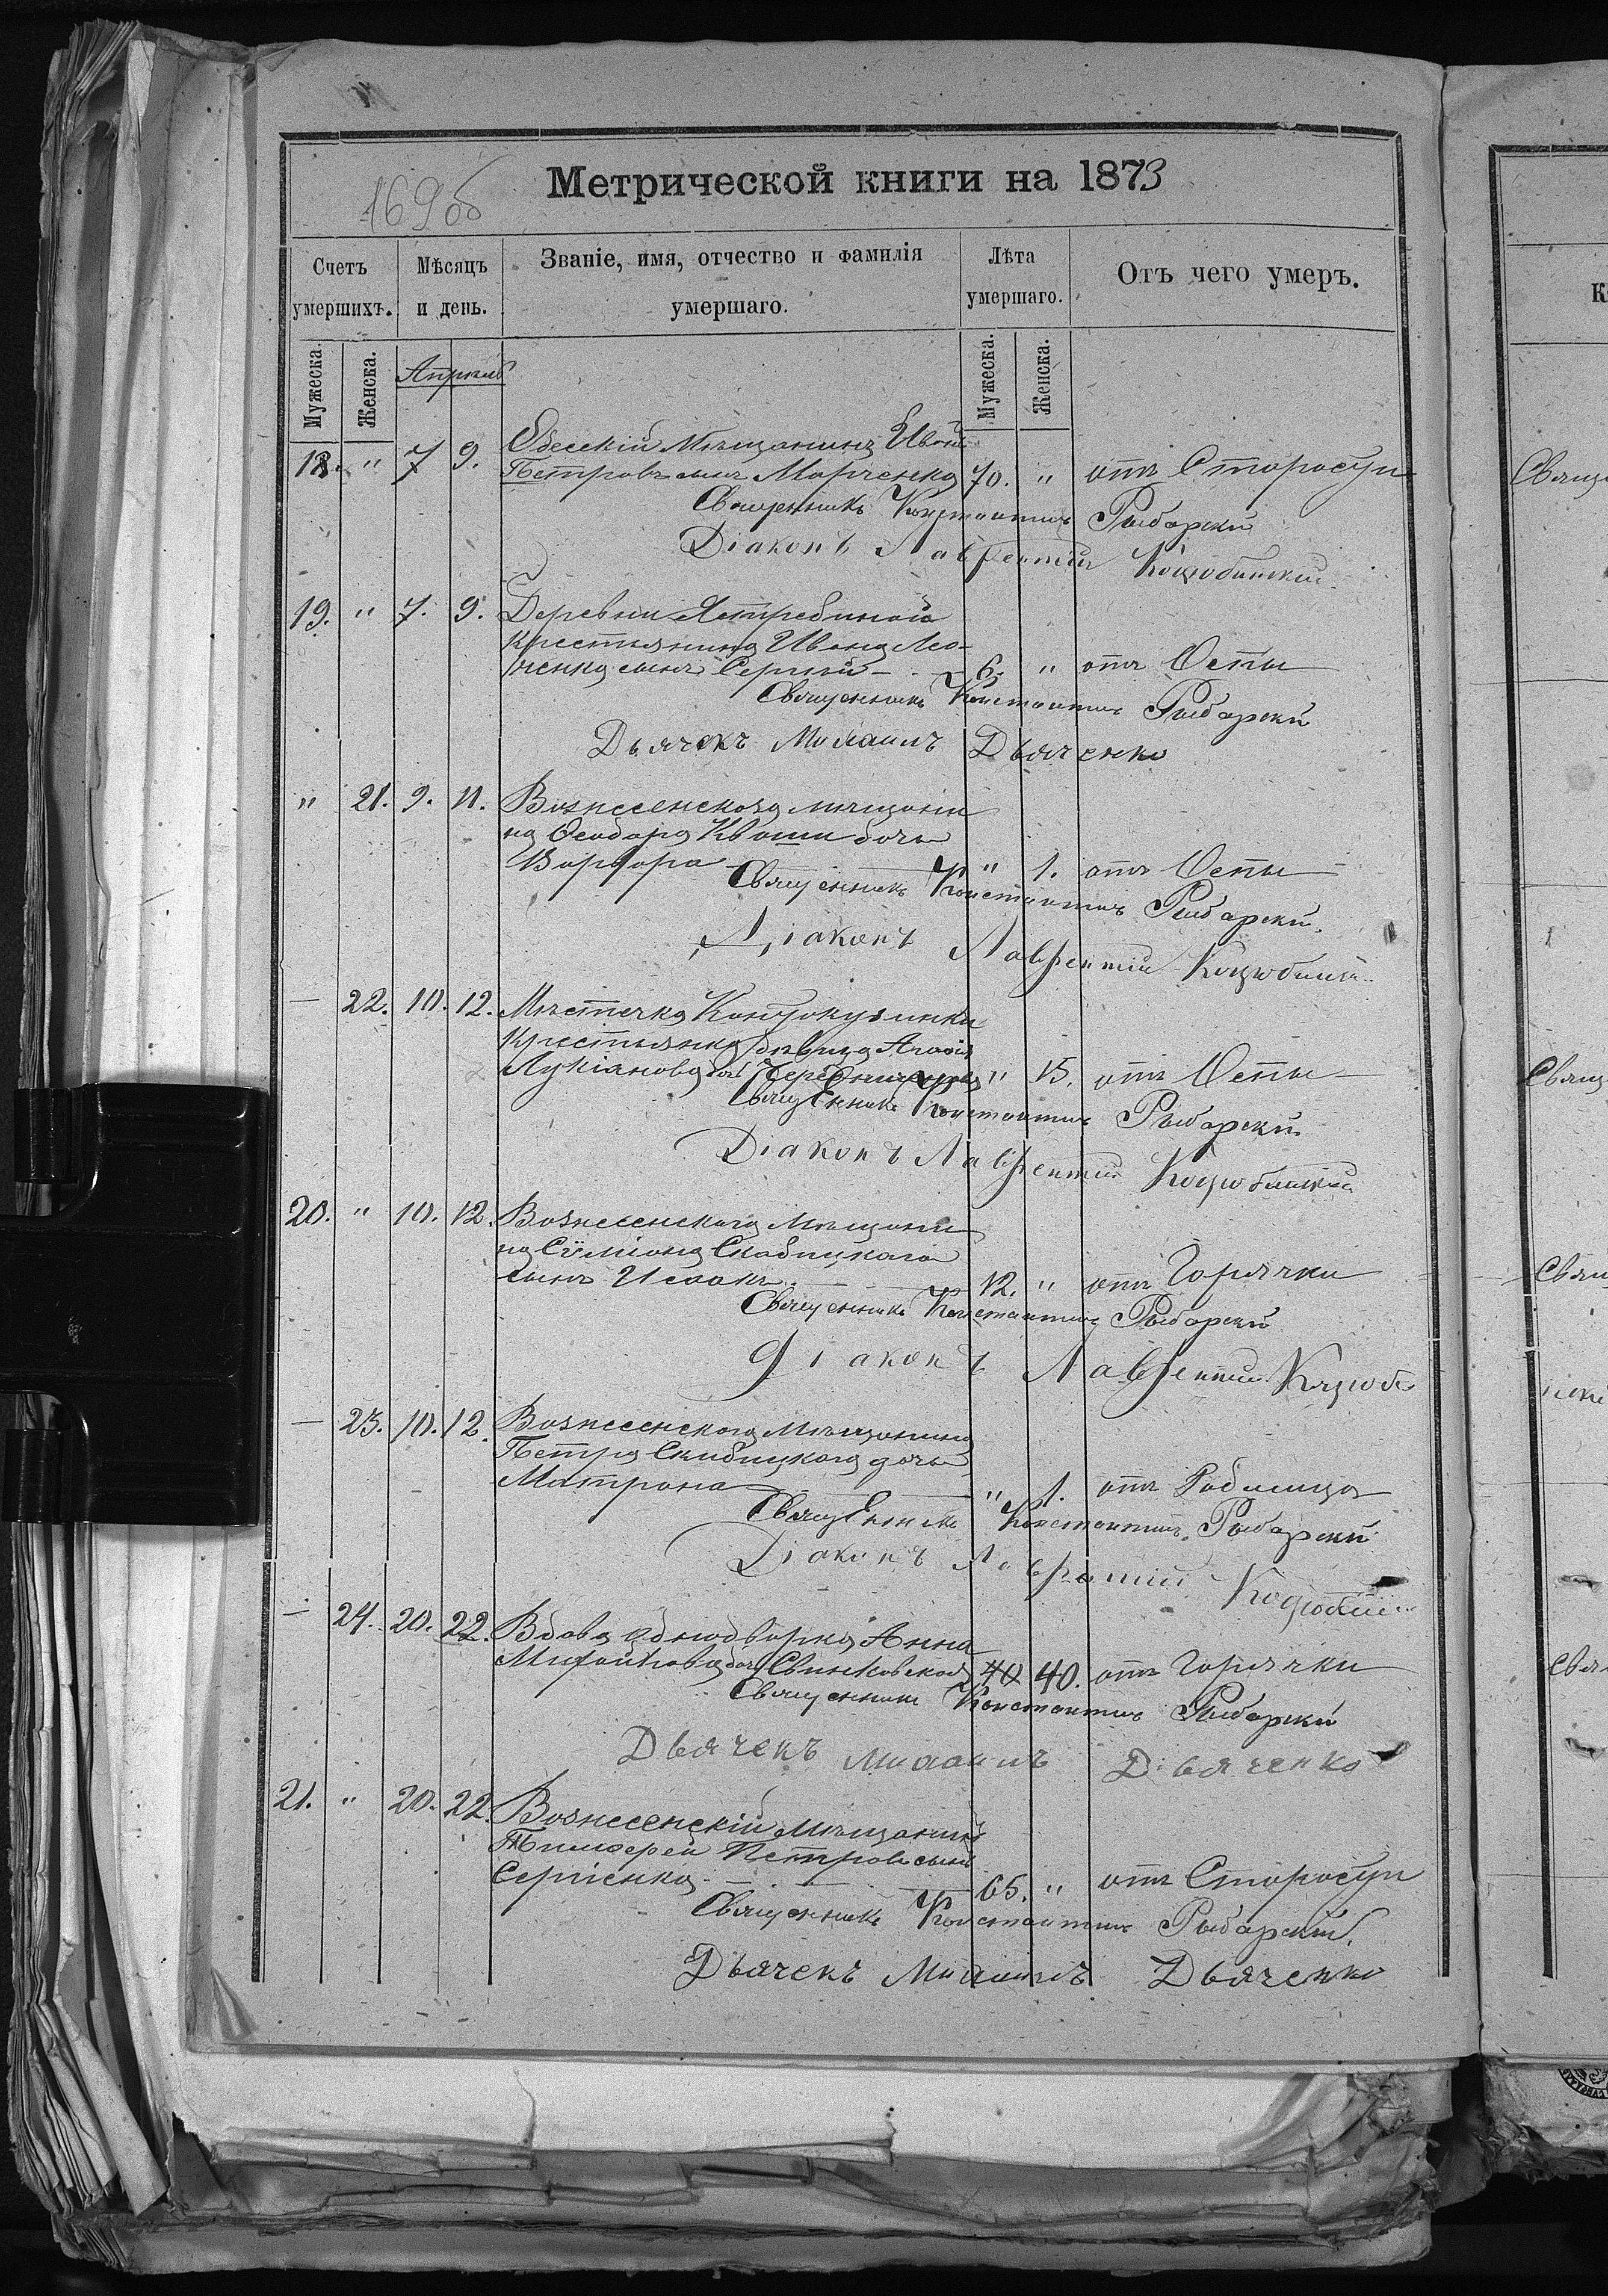 Метрической книги на 1873
169об
Счетъ умершихъ.
Мѣсяцъ и день.
Званіе, имя, отчество и фамилія умершаго.
Лѣта умершаго.
Отъ чего умеръ.
Мужеска.
Женска.
Апрѣль
Мужеска.
Женска.
18. " 7 9. Одесскій мѣщанинъ Иванъ
Петровъ сынъ Марченко 70. " отъ Старости
Священникъ Константинъ Рыбарскій
Діаконъ Лаврентій Коцюбинскій
19. " 7. 9. Деревни Ястребиной
крестьянина Ивана
сынъ Сергѣй 6. " отъ Оспы
Священникъ Константинъ Рыбарскій
Дьячекъ Михаилъ Дьяченко
" 21. 9. 11. Вознесенскаго мѣщани
на Ѳеодора Кваши дочь
Варвара " 1. отъ Оспы
Священникъ Константинъ Рыбарскій.
Діаконъ Лаврентій Коцюбинскій
— 22. 10. 12. Мѣстечка Кантакузинки
крестьянка дѣвица Агафія
Лукіанова дочь " 15. отъ Оспы
Священникъ Константинъ Рыбарскій
Діаконъ Лаврентій Коцюбинскій
20. " 10. 12. Вознесенскаго мѣщани
на Сѵміона Скабицкаго
сынъ Исаакъ 12. " отъ Горячки
Священникъ Константинъ Рыбарскій
Діаконъ Лаврентій Коцюб
— 23. 10. 12. Вознесенскаго мѣщанина
Петра Скибицкаго дочь
Матрона " 1. отъ Родимца
Священникъ Константинъ Рыбарскій
Діаконъ Лаврентій Коцюбин
— 24. 20. 22. Вдова однодворка Анна
Михайлова дочь Свинковская 40 40. отъ Горячки
Священникъ Константинъ Рыбарскій
Дьячекъ Михаилъ Дьяченко
21. " 20. 22. Вознесенскій мѣщанинъ
Тимофей Петровъ сынъ
Сергіенко 65. " отъ Старости
Священникъ Константинъ Рыбарскій.
Дьячекъ Михаилъ Дьяченко